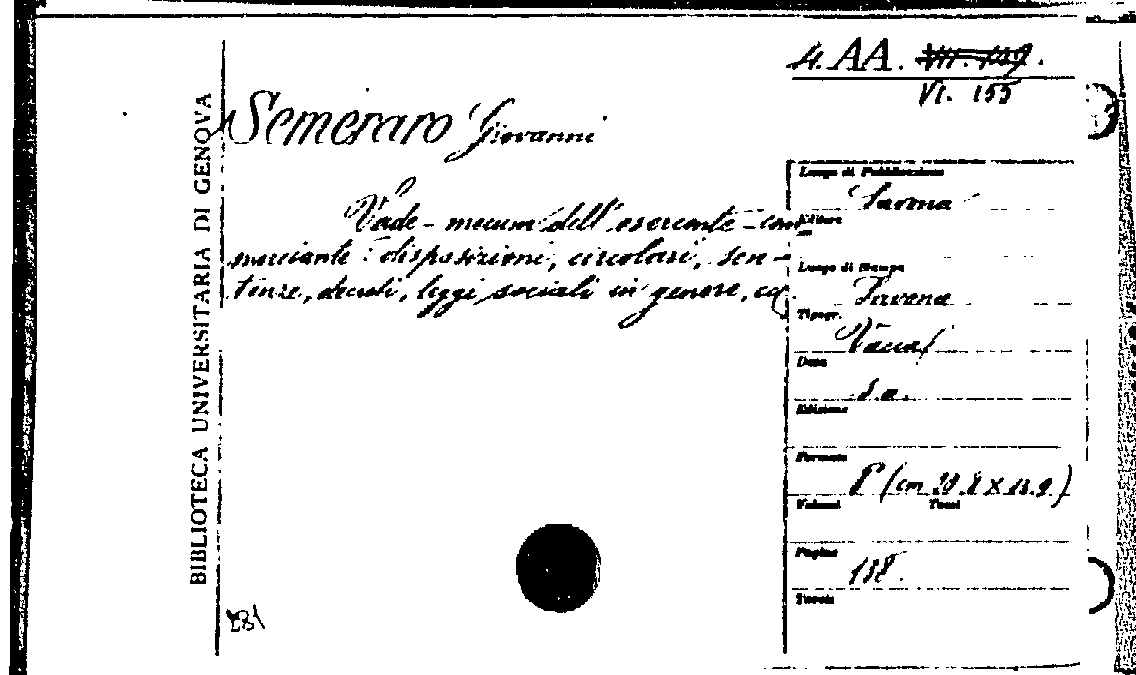 4. AA. VII. 109.
VI. 155
BIBLIOTECA UNIVERSITARIA DI GENOVA
Semeraro Giovanni
Vade-mecum dell'esercente-com
merciante: disposizioni, circolari, sen-
tenze, decreti, leggi sociali in genere, ecc.
Luogo di Pubblicazione
Savona
Editore
Luogo di Stampa
Savona
Tipogr.
Vacca
Data
S. a.
Edizione
Formato
8° (cm
Volumi Tomi
Pagine
118.
Tavole
281